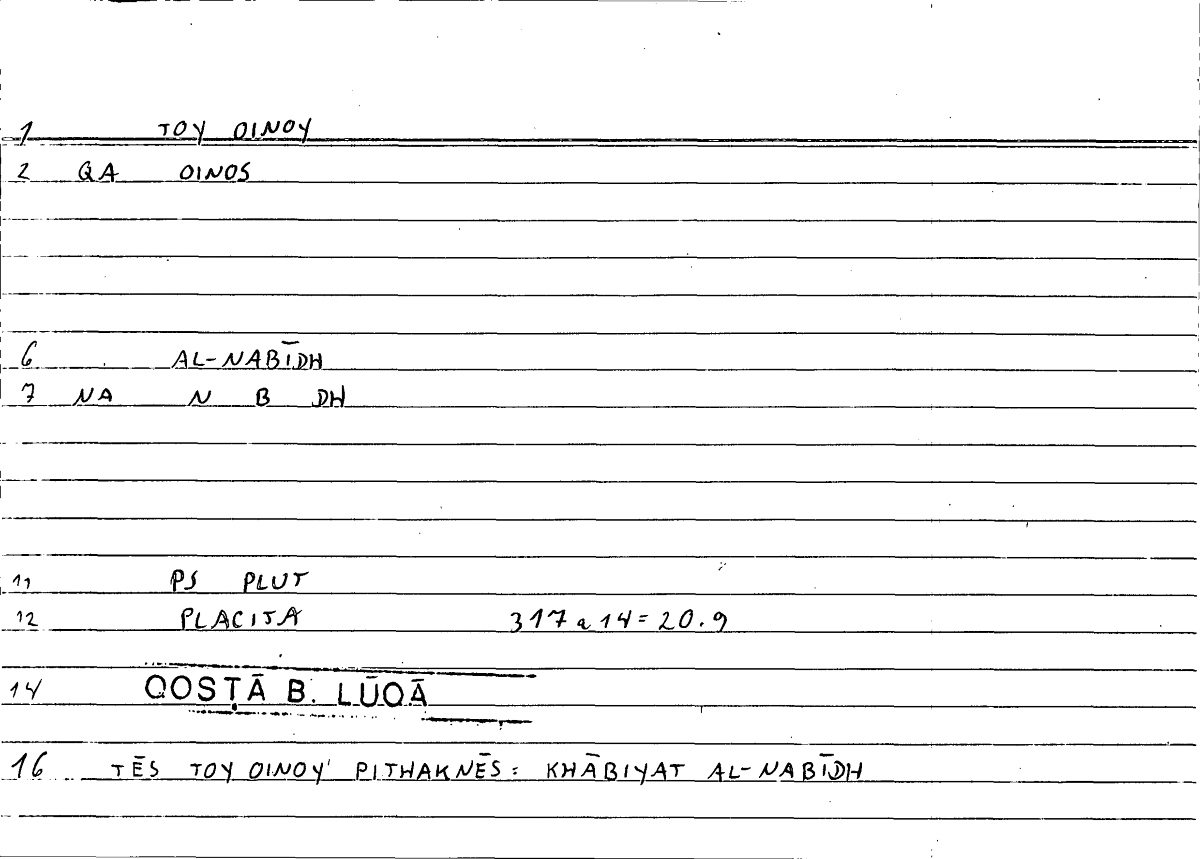 1 TOY OINOY
2 QA OINOS
6 AL-NABĪDH
7 NA N B DH
11 PS PLUT
12 PLACITA 317a14=20.9
14 QOSṬĀ B. LŪQĀ
16 TĒS TOY OINOY PITHAKNĒS: KHĀBIYAT AL-NABĪDH